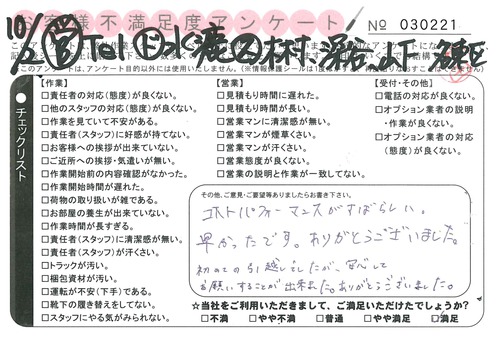 お客様不満足度アンケート
№ 030221
チェックリスト
【作業】
□責任者の対応(態度)が良くない。
□他のスタッフの対応(態度)が良くない。
□作業を見ていて不安がある。
□責任者(スタッフ)に好感が持てない。
□お客様への挨拶が出来ていない。
□ご近所への挨拶・気遣いが無い。
□作業開始前の内容確認がなかった。
□作業開始時間が遅れた。
□荷物の取り扱いが雑である。
□お部屋の養生が出来ていない。
□作業時間が長すぎる。
□責任者(スタッフ)に清潔感が無い。
□責任者(スタッフ)が汗くさい。
□トラックが汚い。
□梱包資材が汚い。
□運転が不安(下手)である。
□靴下の履き替えをしてない。
□スタッフにやる気がみられない。
【営業】
□見積もり時間に遅れた。
□見積もり時間が長い。
□営業マンに清潔感が無い。
□営業マンが煙草くさい。
□営業マンが汗くさい。
□営業態度が良くない。
□営業の説明と作業が一致してない。
【受付・その他】
□電話の対応が良くない。
□オプション業者の説明
・作業が良くない。
□オプション業者の対応
(態度)が良くない。
その他、ご意見・ご要望等ありましたらお書き下さい。
コストパフォーマンスがすばらしい。
早かったです。ありがとうございました。
初めての引越しでしたが、安心して
お願いすることが出来ました。ありがとうございました。
☆当社をご利用いただきまして、ご満足いただけたでしょうか?
□不満 □やや不満 □普通 □やや満足 □満足